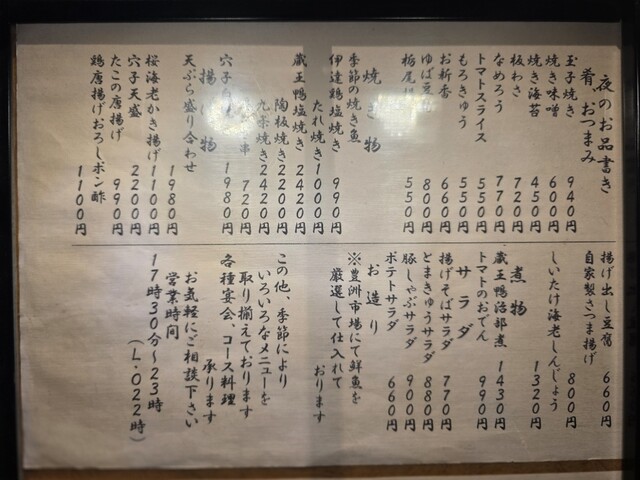 夜のお品書き
肴 おつまみ
玉子焼き 940円
焼き味噌 600円
焼き海苔 450円
板わさ 720円
なめろう 770円
トマトスライス 550円
もろきゅう 550円
お新香 660円
ゆば豆 800円
栃尾 550円
焼き物
季節の焼き魚
伊達鶏塩焼き 990円
たれ焼き 1000円
蔵王鴨塩焼き 2420円
陶板焼き 2200円
九条焼き 2420円
串 720円
穴子 1980円
揚げ物
天ぷら盛り合わせ 1980円
桜海老かき揚げ 1100円
穴子天盛 2200円
たこの唐揚げ 990円
鶏唐揚げおろしポン酢 1100円
揚げ出し豆腐 660円
自家製さつま揚げ 800円
しいたけ海老しんじょう 1320円
煮物
蔵王鴨治部煮 1430円
トマトのおでん 990円
サラダ
揚げそばサラダ 770円
とまきゅうサラダ 880円
豚しゃぶサラダ 900円
ポテトサラダ 660円
お造り
※豊洲市場にて鮮魚を
厳選して仕入れて
おります
この他、季節により
いろいろなメニューを
取り揃えております
各種宴会、コース料理
承ります
お気軽にご相談下さい
営業時間
17時30分〜23時
(L.O22時)